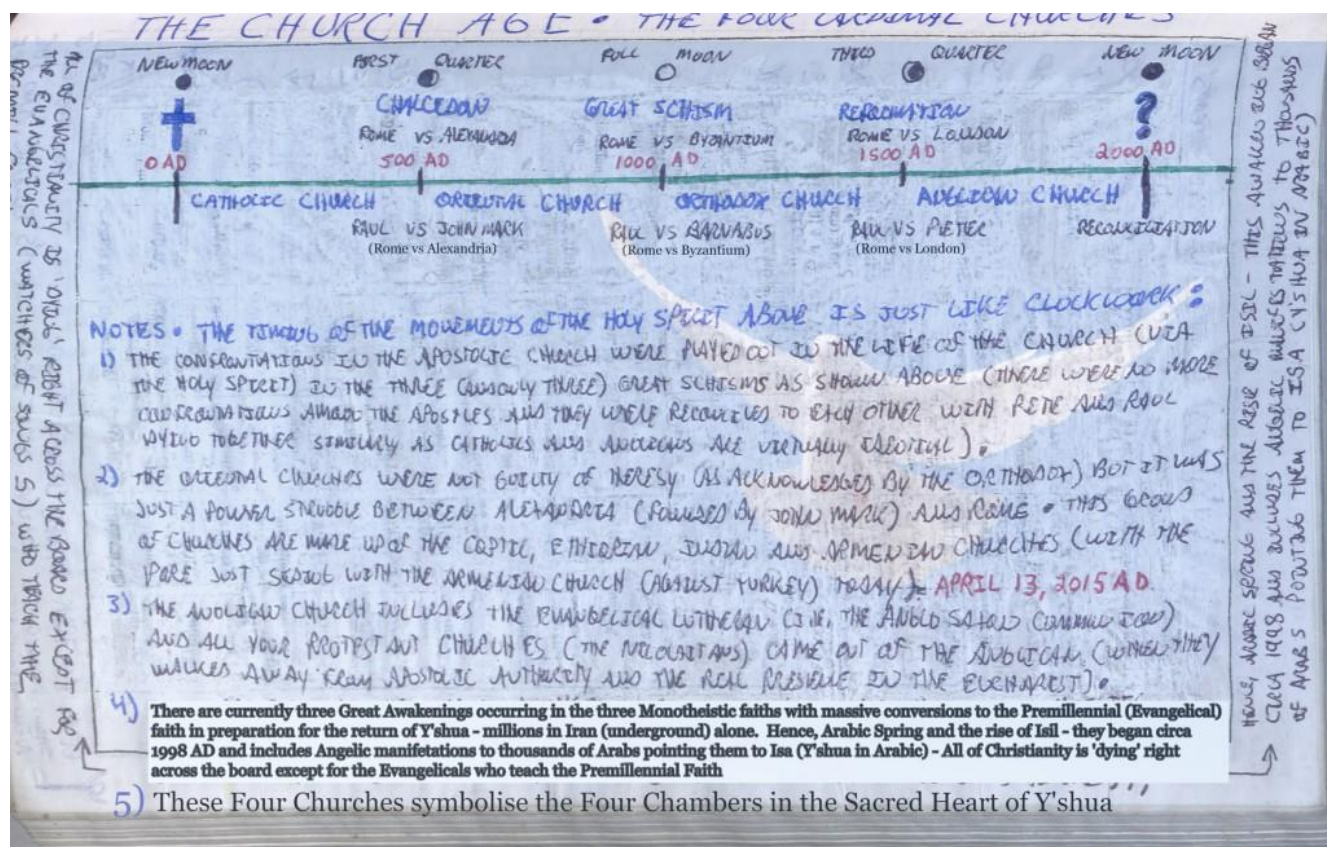 THE CHURCH AGE • THE FOUR CARDINAL CHURCHES
NEW MOON FIRST QUARTER FULL MOON THIRD QUARTER NEW MOON
CHALCEDON GREAT SCHISM REFORMATION ?
ROME VS ALEXANDRIA ROME VS BYZANTIUM ROME VS LONDON
0 AD 500 AD 1000 AD 1500 AD 2000 AD
CATHOLIC CHURCH ORIENTAL CHURCH ORTHODOX CHURCH ANGLICAN CHURCH
PAUL VS JOHN MARK PAUL VS BARNABUS PAUL VS PIETER RECONCILIATION
(Rome vs Alexandria) (Rome vs Byzantium) (Rome vs London)
NOTES • THE TIMING OF THE MOVEMENTS OF THE HOLY SPIRIT ABOVE IS JUST LIKE CLOCKWORK :
1) THE CONFRONTATIONS IN THE APOSTOLIC CHURCH WERE PLAYED OUT IN THE LIFE OF THE CHURCH (VIA
THE HOLY SPIRIT) IN THE THREE (ONLY THREE) GREAT SCHISMS AS SHOWN ABOVE (THERE WERE NO MORE
CONFRONTATIONS AMONG THE APOSTLES AND THEY WERE RECONCILED TO EACH OTHER WITH PETE AND PAUL
DYING TOGETHER SIMILARLY AS CATHOLICS AND ANGLICANS ARE VIRTUALLY IDENTICAL).
2) THE ORIENTAL CHURCHES WERE NOT GUILTY OF HERESY (AS ACKNOWLEDGED BY THE ORTHODOX) BUT IT WAS
JUST A POWER STRUGGLE BETWEEN ALEXANDRIA (FOUNDED BY JOHN MARK) AND ROME • THIS GROUP
OF CHURCHES ARE MADE UP OF THE COPTIC, ETHIOPIAN, INDIAN AND ARMENIAN CHURCHES (WITH THE
POPE JUST SIDING WITH THE ARMENIAN CHURCH (AGAINST TURKEY) TODAY) = APRIL 13, 2015 AD.
3) THE ANGLICAN CHURCH INCLUDES THE EVANGELICAL LUTHERAN (IE, THE ANGLO SAXON COMMUNION)
AND ALL YOUR PROTESTANT CHURCHES (THE NICOLAITANS) CAME OUT OF THE ANGLICAN (WHEN THEY
WALKED AWAY FROM APOSTOLIC AUTHORITY AND THE REAL PRESENCE IN THE EUCHARIST).
4) There are currently three Great Awakenings occurring in the three Monotheistic faiths with massive conversions to the Premillennial (Evangelical)
faith in preparation for the return of Y'shua - millions in Iran (underground) alone. Hence, Arabic Spring and the rise of Isil - they began circa
1998 AD and includes Angelic manifetations to thousands of Arabs pointing them to Isa (Y'shua in Arabic) - All of Christianity is 'dying' right
across the board except for the Evangelicals who teach the Premillennial Faith
5) These Four Churches symbolise the Four Chambers in the Sacred Heart of Y'shua
ALL OF CHRISTIANITY IS 'DYING' RIGHT ACROSS THE BOARD EXCEPT FOR
THE EVANGELICALS (WATCHERS OF SONGS 5) WHO TEACH THE
HENCE, ARABIC SPRING AND THE RISE OF ISIL - THIS AWAKENING BEGAN
CIRCA 1998 AND INCLUDES ANGELIC MANIFESTATIONS TO THOUSANDS
OF ARABS POINTING THEM TO ISA (Y'SHUA IN ARABIC)